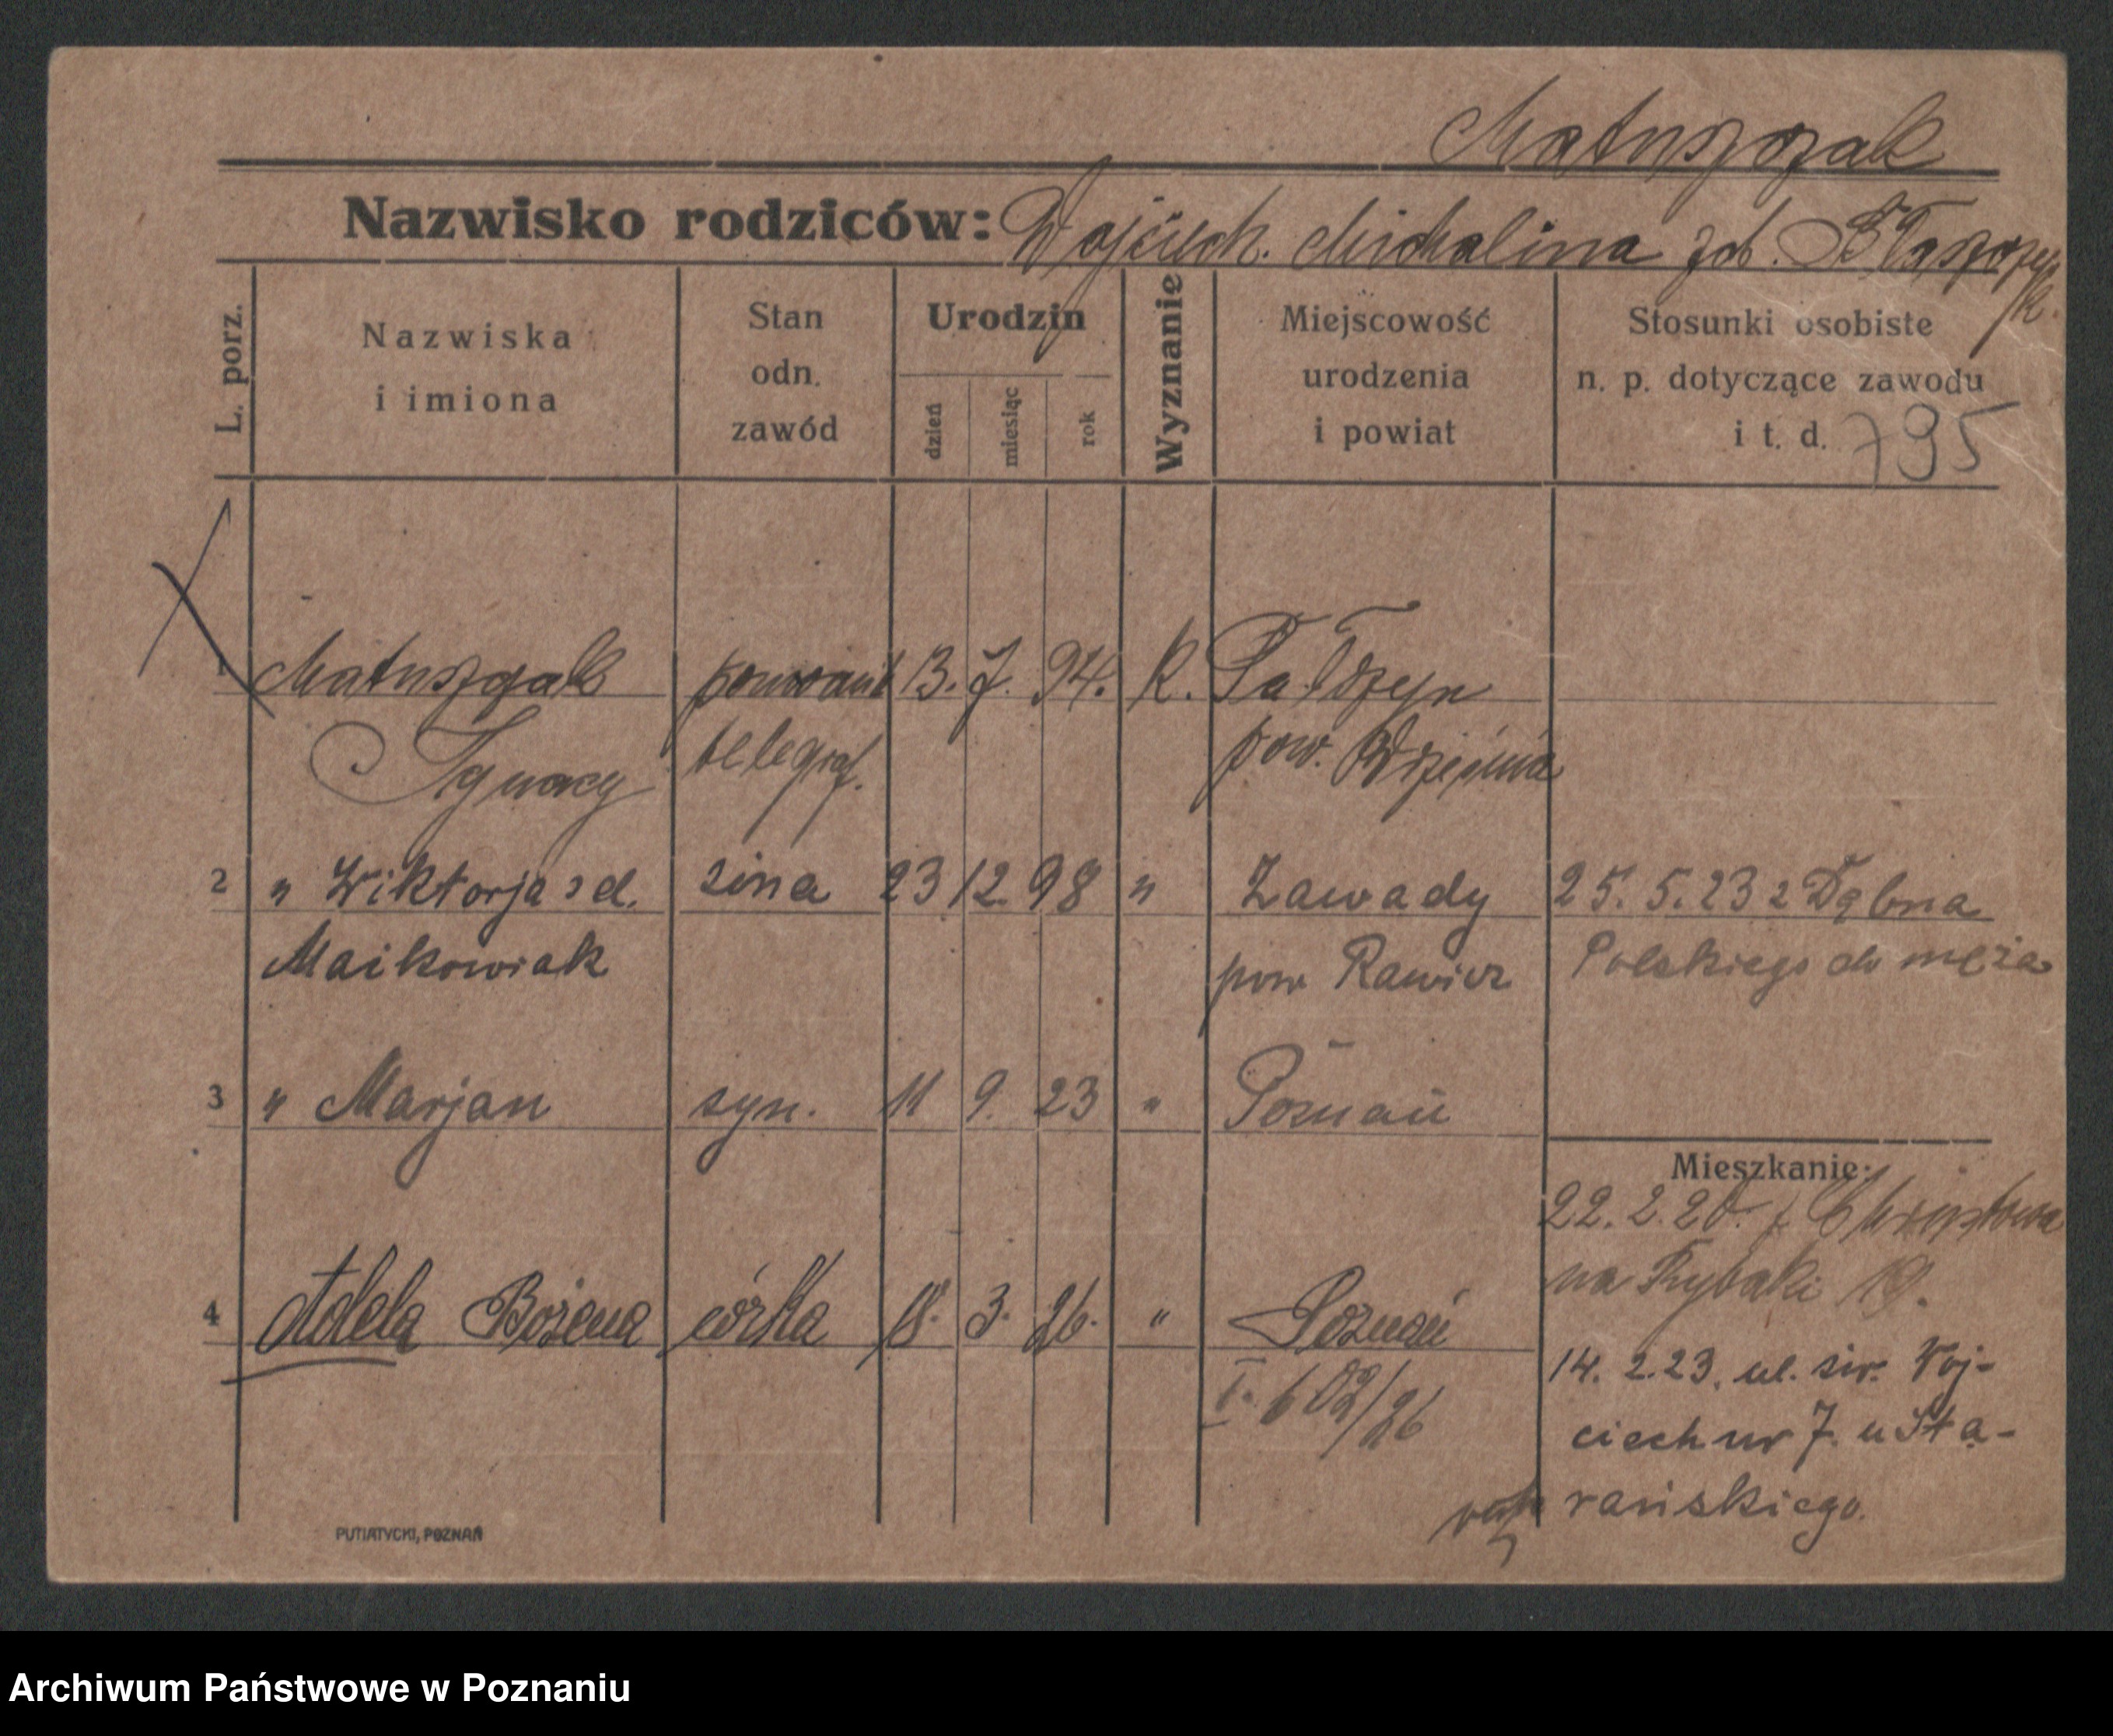 Matuszczak
Nazwisko rodziców: Wojciech. Michalina zd. Błaszczyk.
L. porz.
Nazwiska
i imiona
Stan
odn.
zawód
Urodzin
dzień
miesiąc
rok
Wyznanie
Miejscowość
urodzenia
i powiat
Stosunki osobiste
n. p. dotyczące zawodu
i t. d. 795
1 Matuszczak 13. 7. 94. K.
Ignacy telegraf. pow. Września
2 " Wiktorja zd. żona 23 12. 98 " Zawady 25. 5. 23 z Dębna
Maikowiak pow Rawicz Polskiego do męża
3 " Marjan syn. 11 9. 23 " Poznań
Mieszkanie:
22. 2. 20. z
na Rybaki 19.
4 Adela Bożena córka 18. 3. 26. " Poznań
I. 602/26
14. 2. 23. ul. św. Woj-
ciech nr 7. u Sta-
rańskiego.
PUTIATYCKI, POZNAŃ
Archiwum Państwowe w Poznaniu